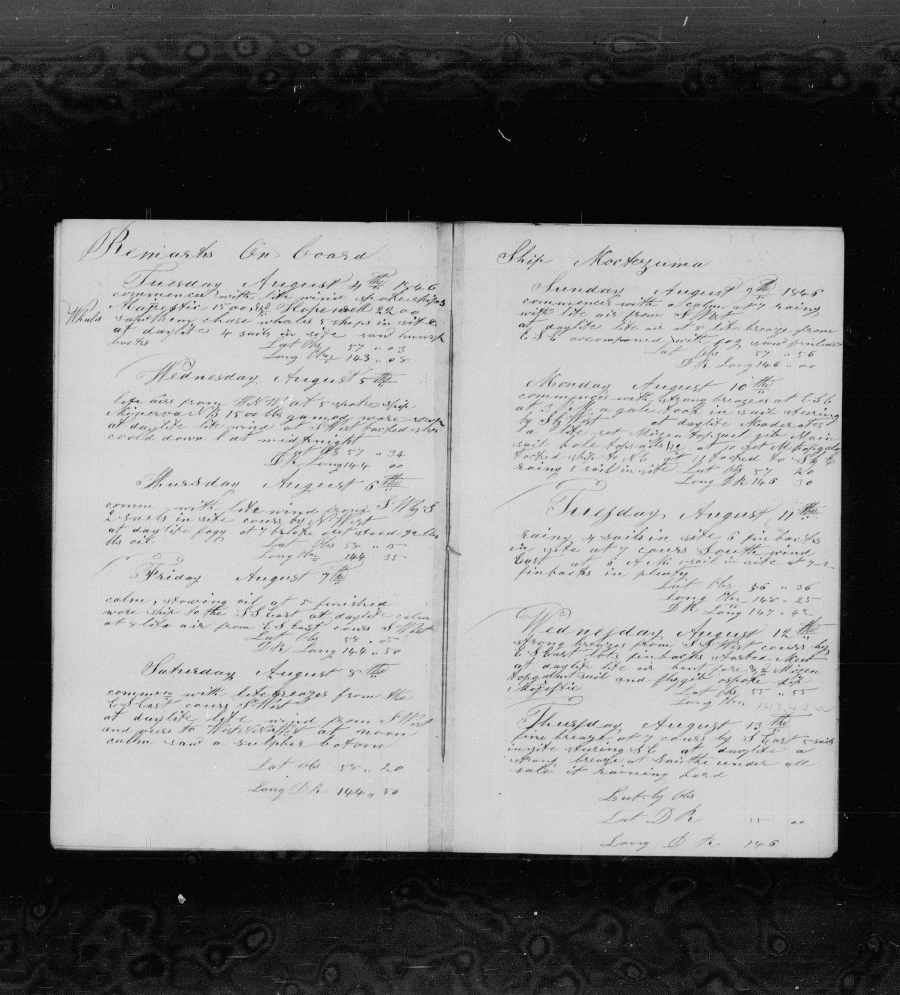 Remarks On board
Tuesday August 4th 1846
commences with lite wind spoke ships
Majestic 1500 Hopewell 2200
Whales
saw them chase whales 5 ships in site
at daylite 4 sails in site saw hump
backs Lat Obs 57 " 03
Long 143 " 08
Wednesday August 5th
lite airs from WNW at 5 spoke ship
Minerva NB 1500 lbs gamed wore ship
at daylite lite wind at S West tacked ship
coold down 1 at midknight
Lat Obs 57 " 34
DR Long 144 00
Thursday August 6th
comm with lite wind from S W by S
2 sails in site cours by N West
at daylite fogy at 7 broke out stoed 92 bbs
oil Lat Obs 58 " 15
Long 144 35
Friday August 7th
calm, stowing oil at 5 finished
wore ship to the SS East at daylite calm
at 8 lite air from ES East cours S West
Lat Obs 58 " 05
DR Long 144 " 50
Saturday August 8th
commences with lite breezes from the
ES East cours S West
at daylite lite wind from S West
and veers to at noon
calm saw a sulpher botom
Lat Obs 58 " 20
Long DR 144 " 50
Ship Moctezuma
Sunday August 9th 1846
commences with a calm at 7 rainy
with lite air from S West
at daylite lite air at 8 lite breeze from
ESE accompaned with fog saw finbacks
Lat Obs 57 " 56
DR Long 146 " 00
Monday August 10th
commences with strong breezes at ESE
at a gale took in sail stearing
by S by West at daylite Moderates
lite set Mizen topsail gib Main
sail hole topsails at 10 set M topgals
tacked ship to NE at 11 tacked to S
rainy 1 sail in site Lat Obs 57 20
Long DR 146 30
Tuesday August 11th
rainy 4 sails in site 6 fin backs
in site at 7 cours South wind
East at 6 A M 1 sail in site at 7
finbacks in plenty
Lat Obs 56 " 36
Long 148 " 25
DR Long 147 " 42
Wednesday August 12th
strong breezes from SS West cours by
ES East lots finbacks started Meat
at daylite lite air bent fore & Mizen
topgalant sail and flogib spoke ship
Majestic Lat Obs 55 " 55
Long 147 43 W
Thursday August 13th
fine breeze at 7 cours by S East 5 sails
in site staring SE at daylite a
strong breeze at Southe under all
sale it raining hard
Lat by Obs
Lat DR 55 00
Long DR 146